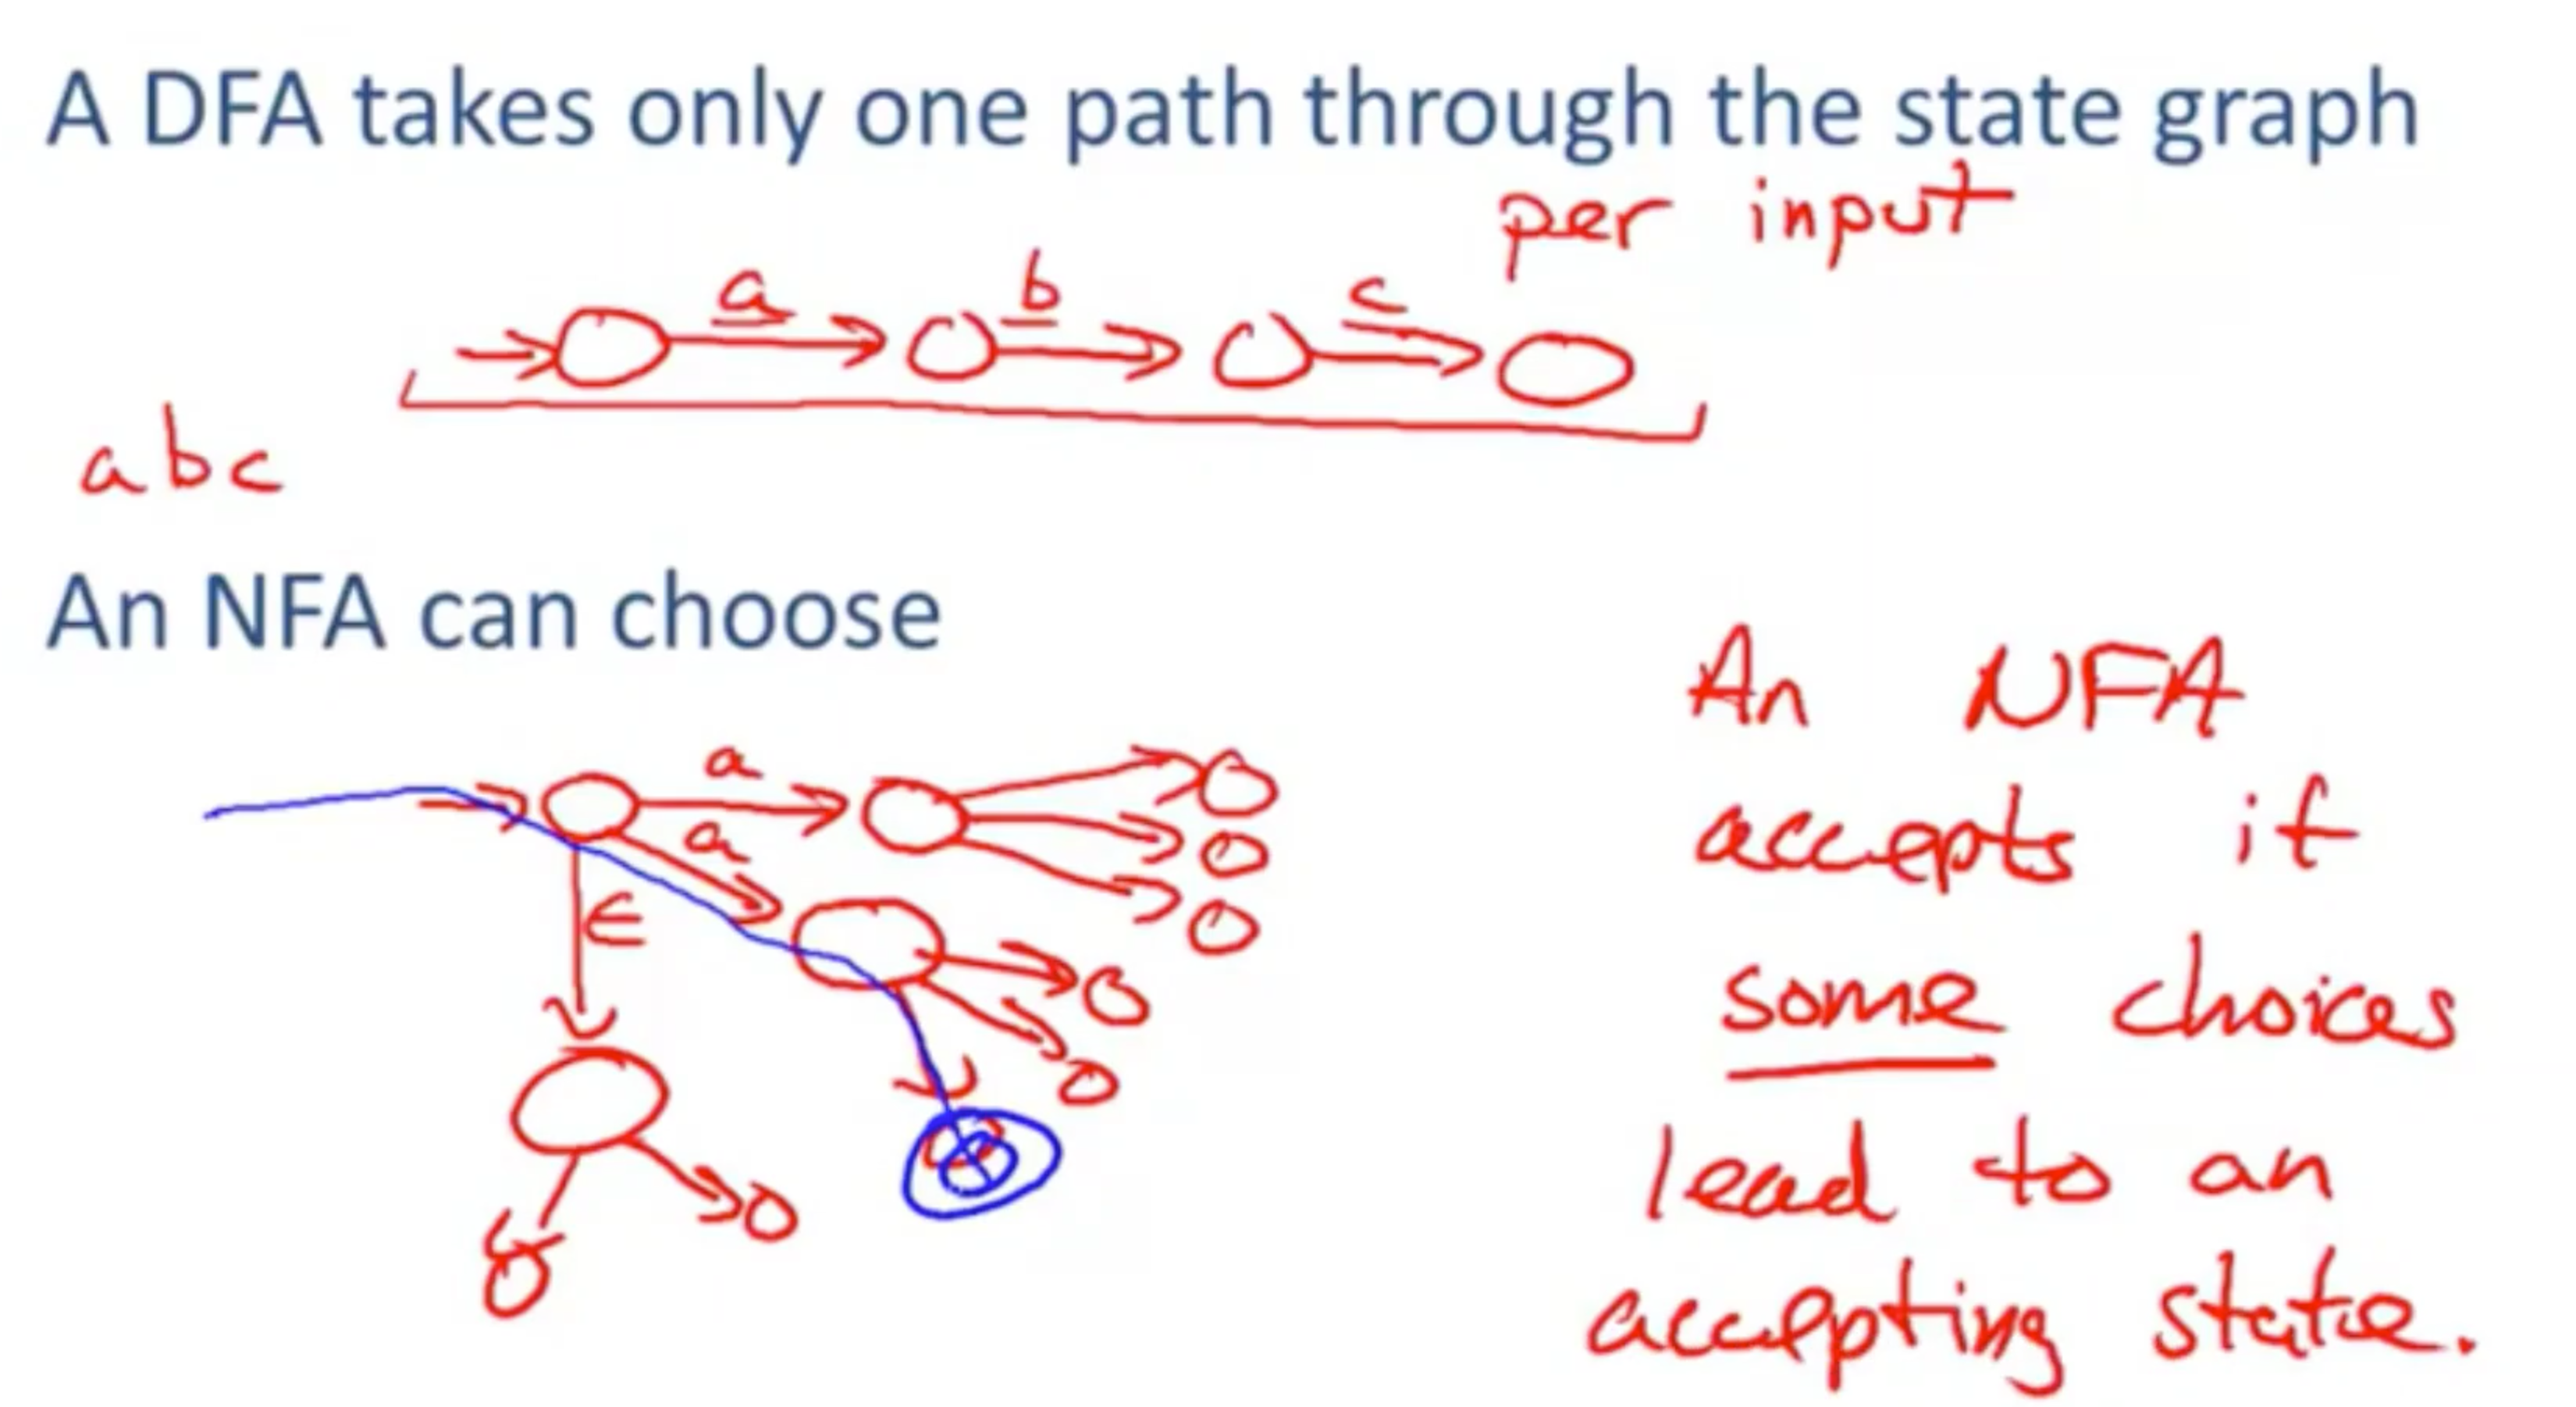 A DFA takes only one path through the state graph
per input
a b c
abc
An NFA can choose
a
a
ϵ
An NFA
accepts if
some choices
lead to an
accepting state.